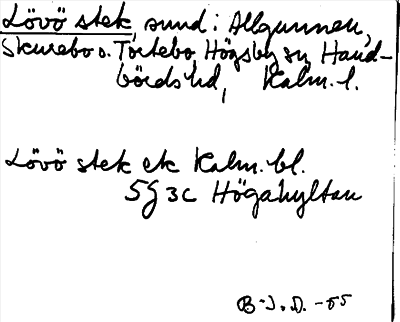 Lövö stek, sund i Allgunnen,
Skurebo o. Tortebo, Högsby sn, Hand-
börds hd, Kalm. l.
Lövö stek ek Kalm. bl.
5G 3c Högahyltan
B-J.D. -55